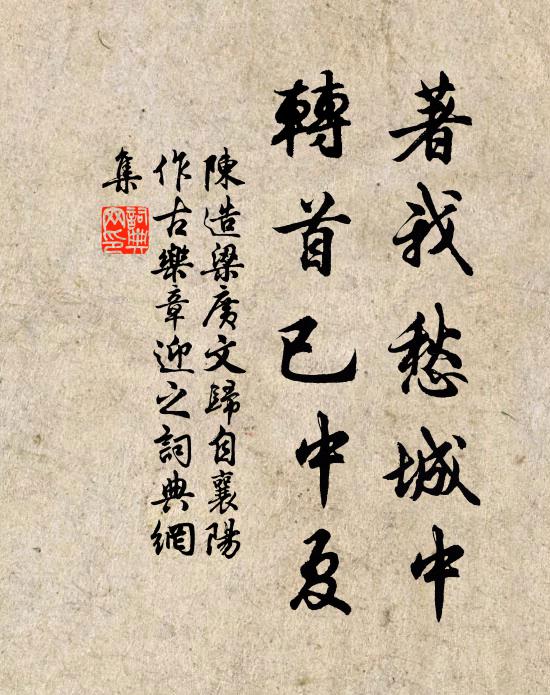 著我愁城中
轉首已中夏
陳造梁廣文歸自襄陽
作古樂章迎之詞典網
集
詞典
网印